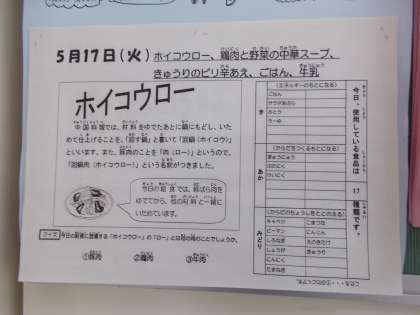 5月17日(火) ホイコウロー、鶏肉と野菜の中華スープ、
きゅうりのピリ辛あえ、ごはん、牛乳
ホイコウロー
中国料理では、材料をゆでたあとに鍋にもどし、いた
めて仕上げることを、「回す鍋」と書いて「回鍋(ホイコウ)」
といいます。また、豚肉のことを「肉(ロー)」というので、
「回鍋肉(ホイコウロー)」という名前がつきました。
今日の給食では、豚ばら肉を
ゆでてから、他の材料と一緒に
いためています。
クイズ 今日の給食に登場する「ホイコウロー」の「ロー」とは何の肉のことでしょうか。
①豚肉 ②鶏肉 ③牛肉
今日、使用している食品は 17 種類です。
き
(エネルギーのもとになる)
ごはん
サラダあぶら
さとう
あか
(からだをつくるもとになる)
ぎゅうにゅう
ぶたにく
とりにく
みどり
(からだのちょうしをととのえる)
キャベツ こまつな
ピーマン にんじん
しろねぎ えのきたけ
しょうが きゅうり
にんにく
たまねぎ